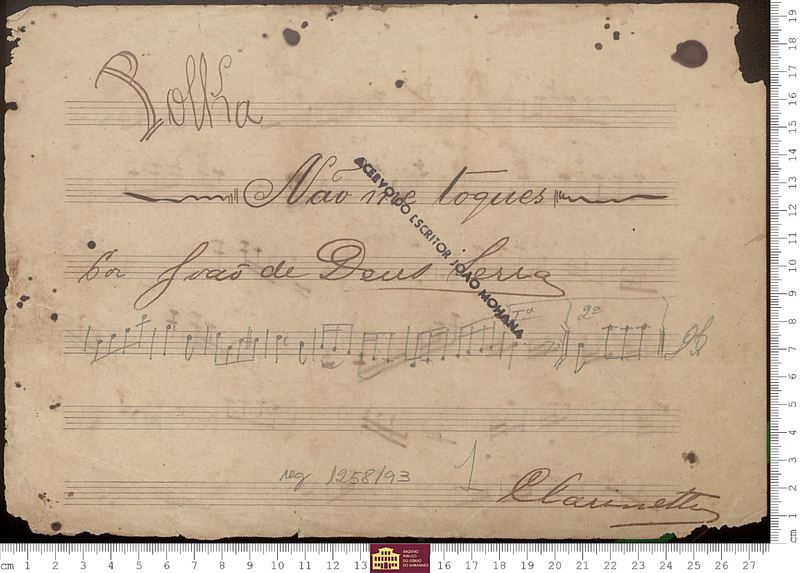 Polka
Não me toques
Por João de Deus Serra
ACERVO DO ESCRITOR JOÃO MOHANA
1ª 2ª
reg 1258/93 1
Clarinette
cm 1 2 3 4 5 6 7 8 9 10 11 12 13 14 15 16 17 18 19 20 21 22 23 24 25 26 27
cm 1 2 3 4 5 6 7 8 9 10 11 12 13 14 15 16 17 18 19
ARQUIVO
PÚBLICO
DO ESTADO
DO MARANHÃO